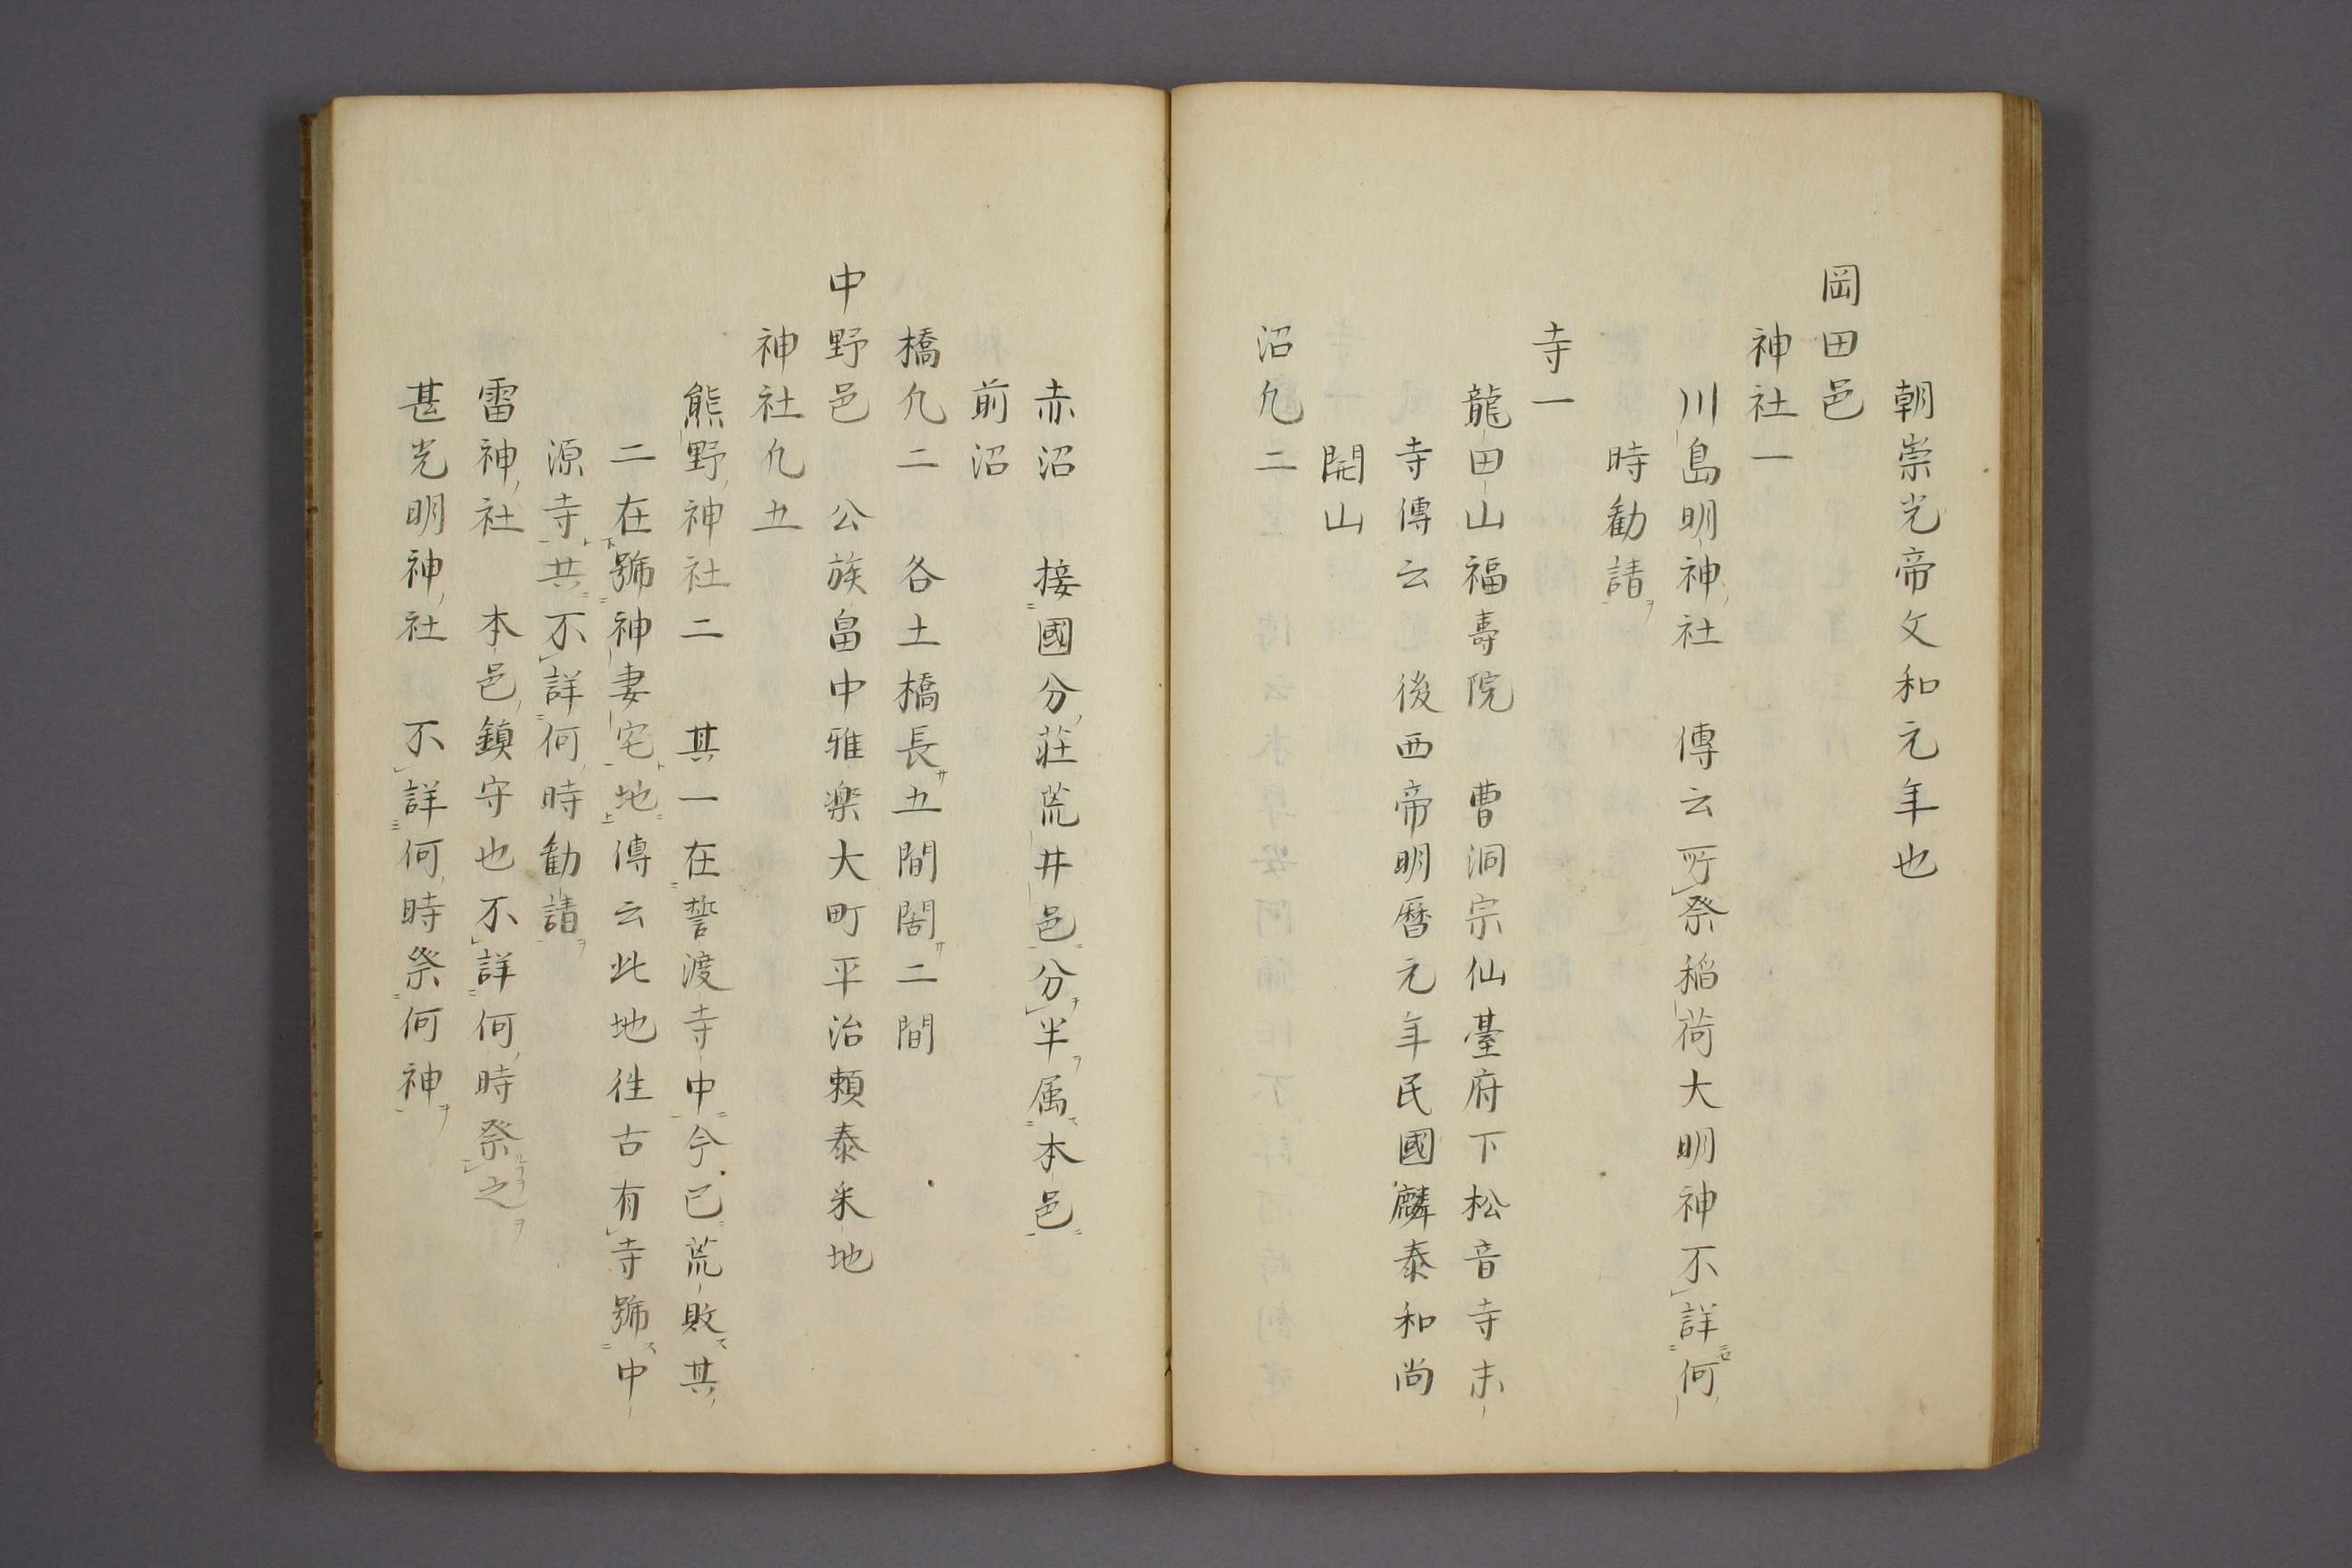 朝崇光帝文和元年也
岡田邑
神社一
川島明神社　傳云所祭稲荷大明神不詳何
時勧請
寺一
龍田山福壽院　曹洞宗仙臺府下松音寺末
寺傳云　後西帝明暦元年民國麟泰和尚
開山
沼凢二
赤沼　接國分荘荒井邑分半属本邑
前沼
橋凢二　各土橋長五間闊二間
中野邑　公族畠中雅楽大町平治頼泰采地
神社凢五
熊野神社二　其一在誓渡寺中今已荒敗其
二在號神妻宅地傳云此地徃古有寺號中
源寺共不詳何時勧請
雷神社　本邑鎮守也不詳何時祭之
甚光明神社　不詳何時祭何神